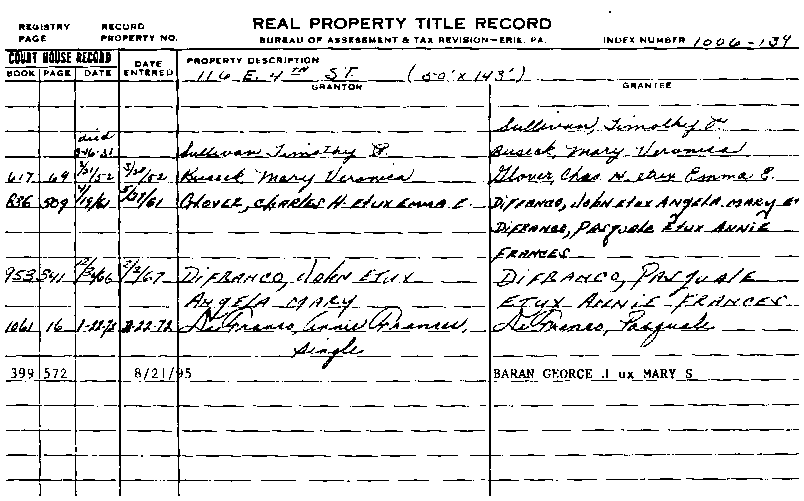 REGISTRY PAGE RECORD PROPERTY NO. REAL PROPERTY TITLE RECORD
BUREAU OF ASSESSMENT & TAX REVISION—ERIE, PA. INDEX NUMBER 1006-139
COURT HOUSE RECORD DATE ENTERED PROPERTY DESCRIPTION
BOOK PAGE DATE 116 E. 4TH ST. (50' X 143')
GRANTOR GRANTEE
Sullivan, Timothy F.
died
Sullivan Timothy F. Buseck, Mary Veronica
617 69 Buseck, Mary Veronica Glover, Chas H. etux Emma E.
836 509 GLOVER, CHARLES H. ETUX EMMA E. DIFRANCO, JOHN ETUX ANGELA MARY ET
DIFRANCO, PASQUALE ETUX ANNIE
FRANCES
953 541 2/2/67 DIFRANCO, JOHN ETUX DIFRANCO, PASQUALE
ANGELA MARY ETUX ANNIE FRANCES
1061 16 DiFranco, Annie Frances, DiFranco, Pasquale
Single
399 572 8/21/95 BARAN GEORGE J ux MARY S